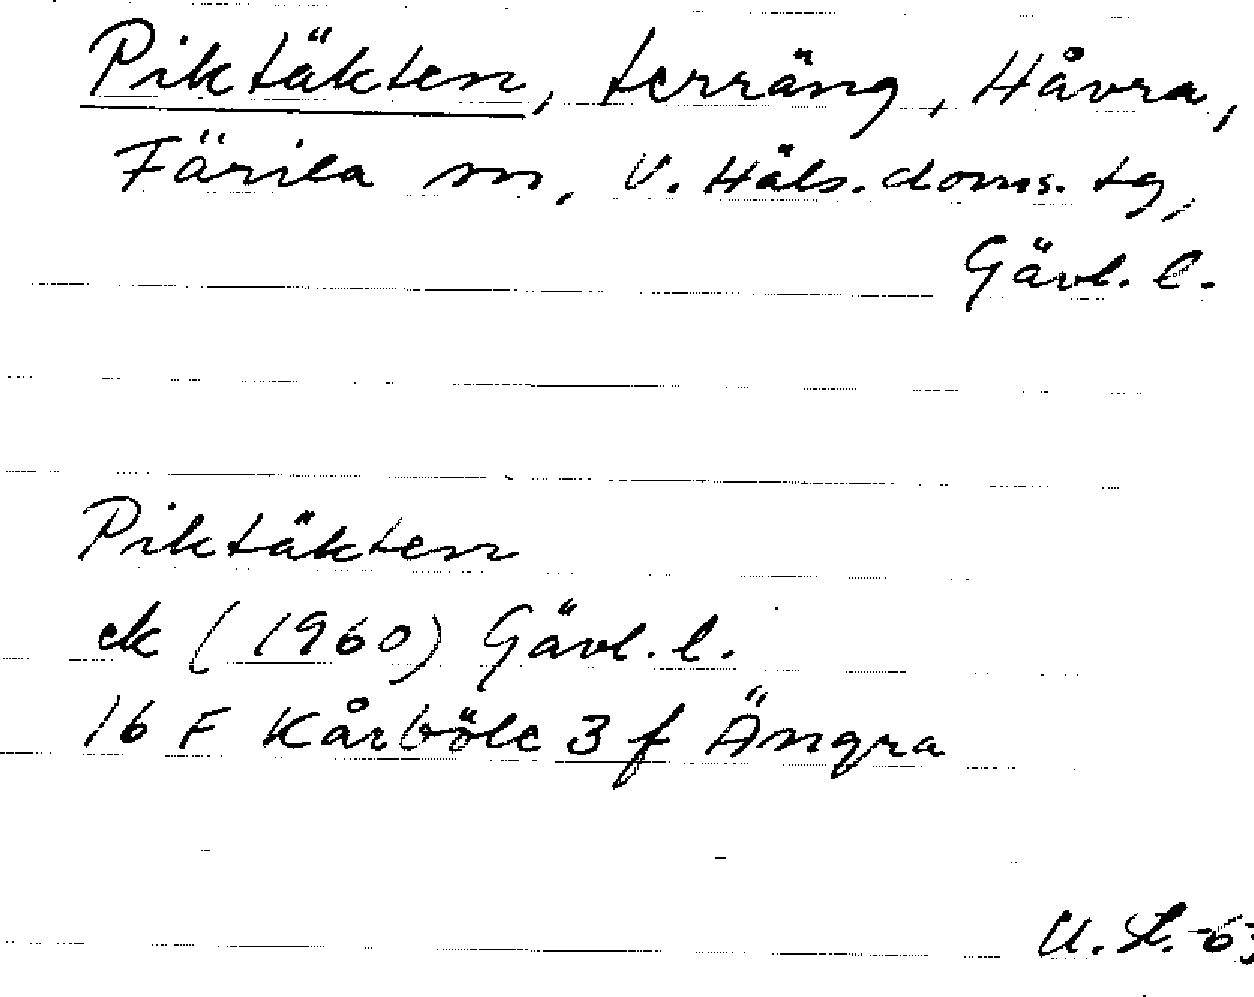 Piktäkten, terräng, Håvra,
Färila sn, V. Häls. doms. tg,
Gävl. l.
Piktäkten
ek (1960) Gävl. l.
16 F Kårböle 3 f Ängra
U. S. -63